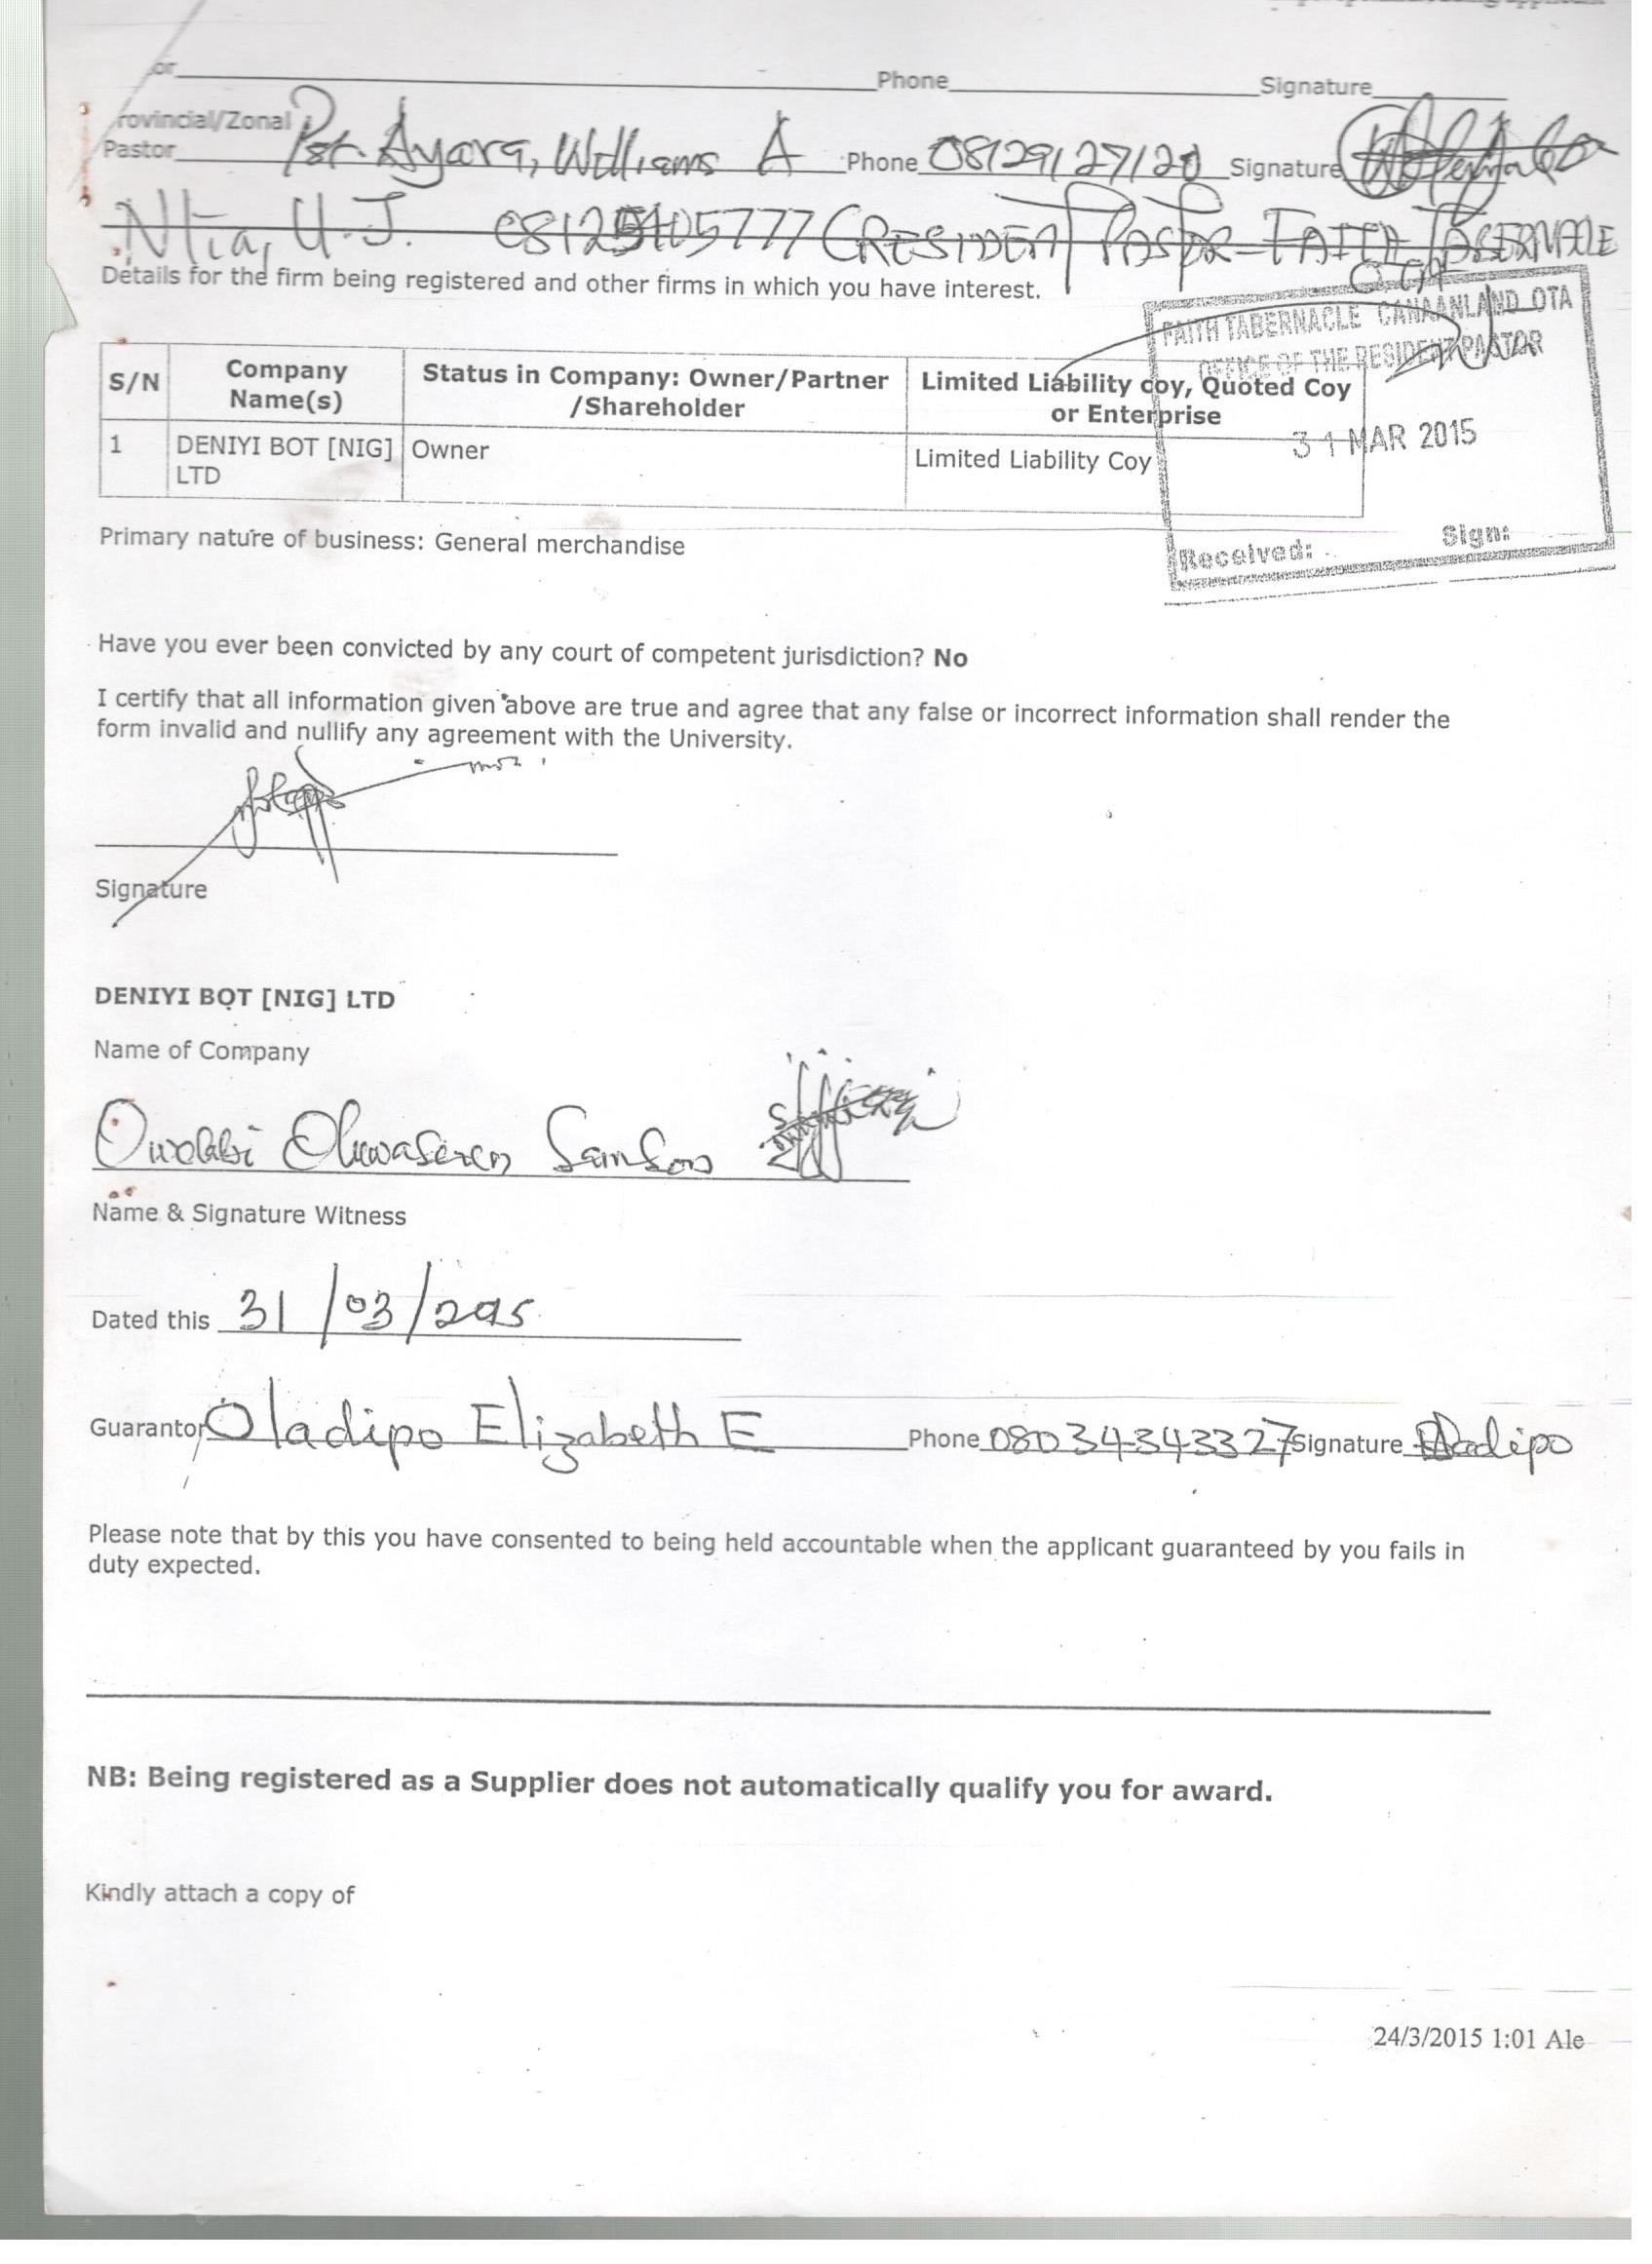 or Phone Signature
rovincial/Zonal
Pastor Pst. Ayara, Williams A Phone 08129127120 Signature
Ntia, U.J. (RESIDENT PASTOR FAITH TABERNACLE
OTA
Details for the firm being registered and other firms in which you have interest.
FAITH TABERNACLE CANAANLAND OTA
OFFICE OF THE RESIDENT PASTOR
31 MAR 2015
Received: Sign:
S/N Company Name(s) Status in Company: Owner/Partner /Shareholder Limited Liability coy, Quoted Coy or Enterprise
1 DENIYI BOT [NIG] LTD Owner Limited Liability Coy
Primary nature of business: General merchandise
Have you ever been convicted by any court of competent jurisdiction? No
I certify that all information given above are true and agree that any false or incorrect information shall render the
form invalid and nullify any agreement with the University.
Signature
DENIYI BOT [NIG] LTD
Name of Company
Owolabi Oluwaseun Samson
Name & Signature Witness
Dated this 31/03/2015
Guarantor Oladipo Elizabeth E Phone 08034343327 Signature Oladipo
Please note that by this you have consented to being held accountable when the applicant guaranteed by you fails in
duty expected.
NB: Being registered as a Supplier does not automatically qualify you for award.
Kindly attach a copy of
24/3/2015 1:01 Ale